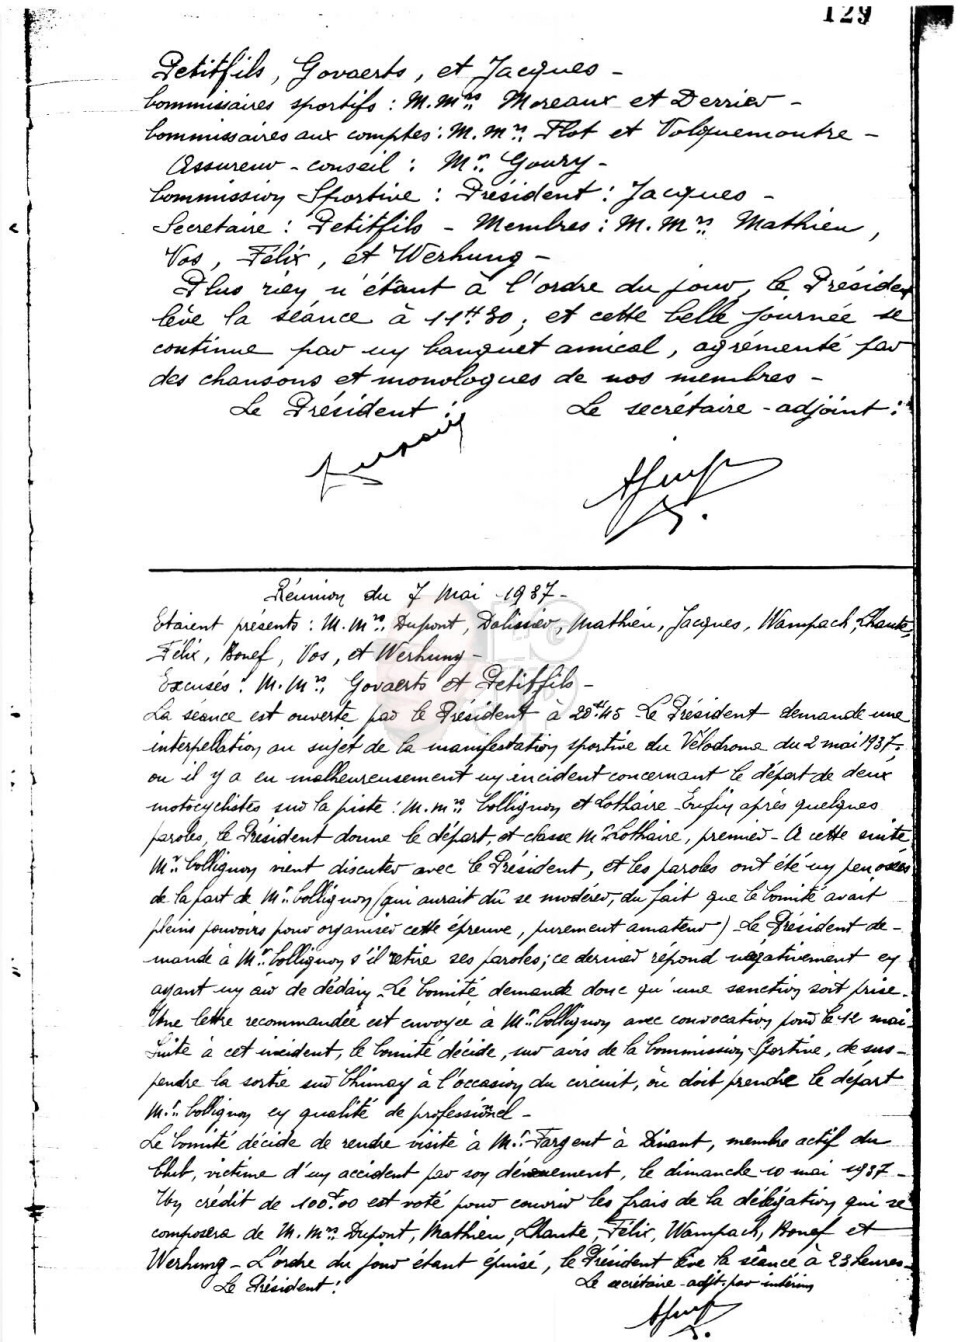 129
Petitfils, Govaerts, et Jacques -
Commissaires sportifs : M.Mrs Moreaux et Derrier -
Commissaires aux comptes : M.Mrs Flot et Volquemontre -
Assureur - conseil : Mr. Goury -
Commission Sportive : Président : Jacques -
Secretaire : Petitfils - Membres : M.Mrs Mathieu,
Vos, Félix, et Werhung -
Plus rien n'étant à l'ordre du jour, le Président
lève la séance à 11H30 ; et cette belle journée se
continue par un banquet amical, agrémenté par
des chansons et monologues de nos membres -
Le Président : Le secrétaire - adjoint :
Réunion du 7 Mai 1937 -
Etaient présents : M.Mrs Dupont, Dalissier, Mathieu, Jacques, Wampach, Lhaute,
Félix, Bonef, Vos, et Werhung -
Excusés : M.Mrs Govaerts et Petitfils -
La séance est ouverte par le Président à 20H45 - Le Président demande une
interpellation au sujet de la manifestation sportive du Vélodrome du 2 mai 1937 -
ou il y a eu malheureusement un incident concernant le départ de deux
motocyclistes sur la piste : M.Mrs Collignon et Lothaire - Enfin après quelques
paroles, le Président donne le départ, et classe Mr Lothaire, premier - A cette suite
Mr Collignon vient discuter avec le Président, et les paroles ont été un peu osées
de la part de Mr Collignon (qui aurait dû se modérer, du fait que le Comité avait
pleins pouvoirs pour organiser cette épreuve, purement amateur) - Le Président de-
mande à Mr Collignon s'il retire ses paroles ; ce dernier répond négativement en
ayant un air de dédain - Le Comité demande donc qu'une sanction soit prise -
Une lettre recommandée est envoyée à Mr Collignon avec convocation pour le 12 mai -
Suite à cet incident, le Comité décide, sur avis de la Commission Sportive, de sus-
pendre la sortie sur Chimay à l'occasion du circuit, où doit prendre le départ
Mr. Collignon en qualité de professionel -
Le Comité décide de rendre visite à Mr. Fargent à Dinant, membre actif du
Club, victime d'un accident par son dévouement, le dimanche 10 mai 1937 -
Un crédit de 100f00 est voté pour couvrir les frais de la délégation qui se
composera de M.Mrs Dupont, Mathieu, Lhaute, Félix, Wampach, Bonef et
Werhung - L'ordre du jour étant épuisé, le Président lève la séance à 23 heures -
Le Président : Le secrétaire - adjt. par intérim